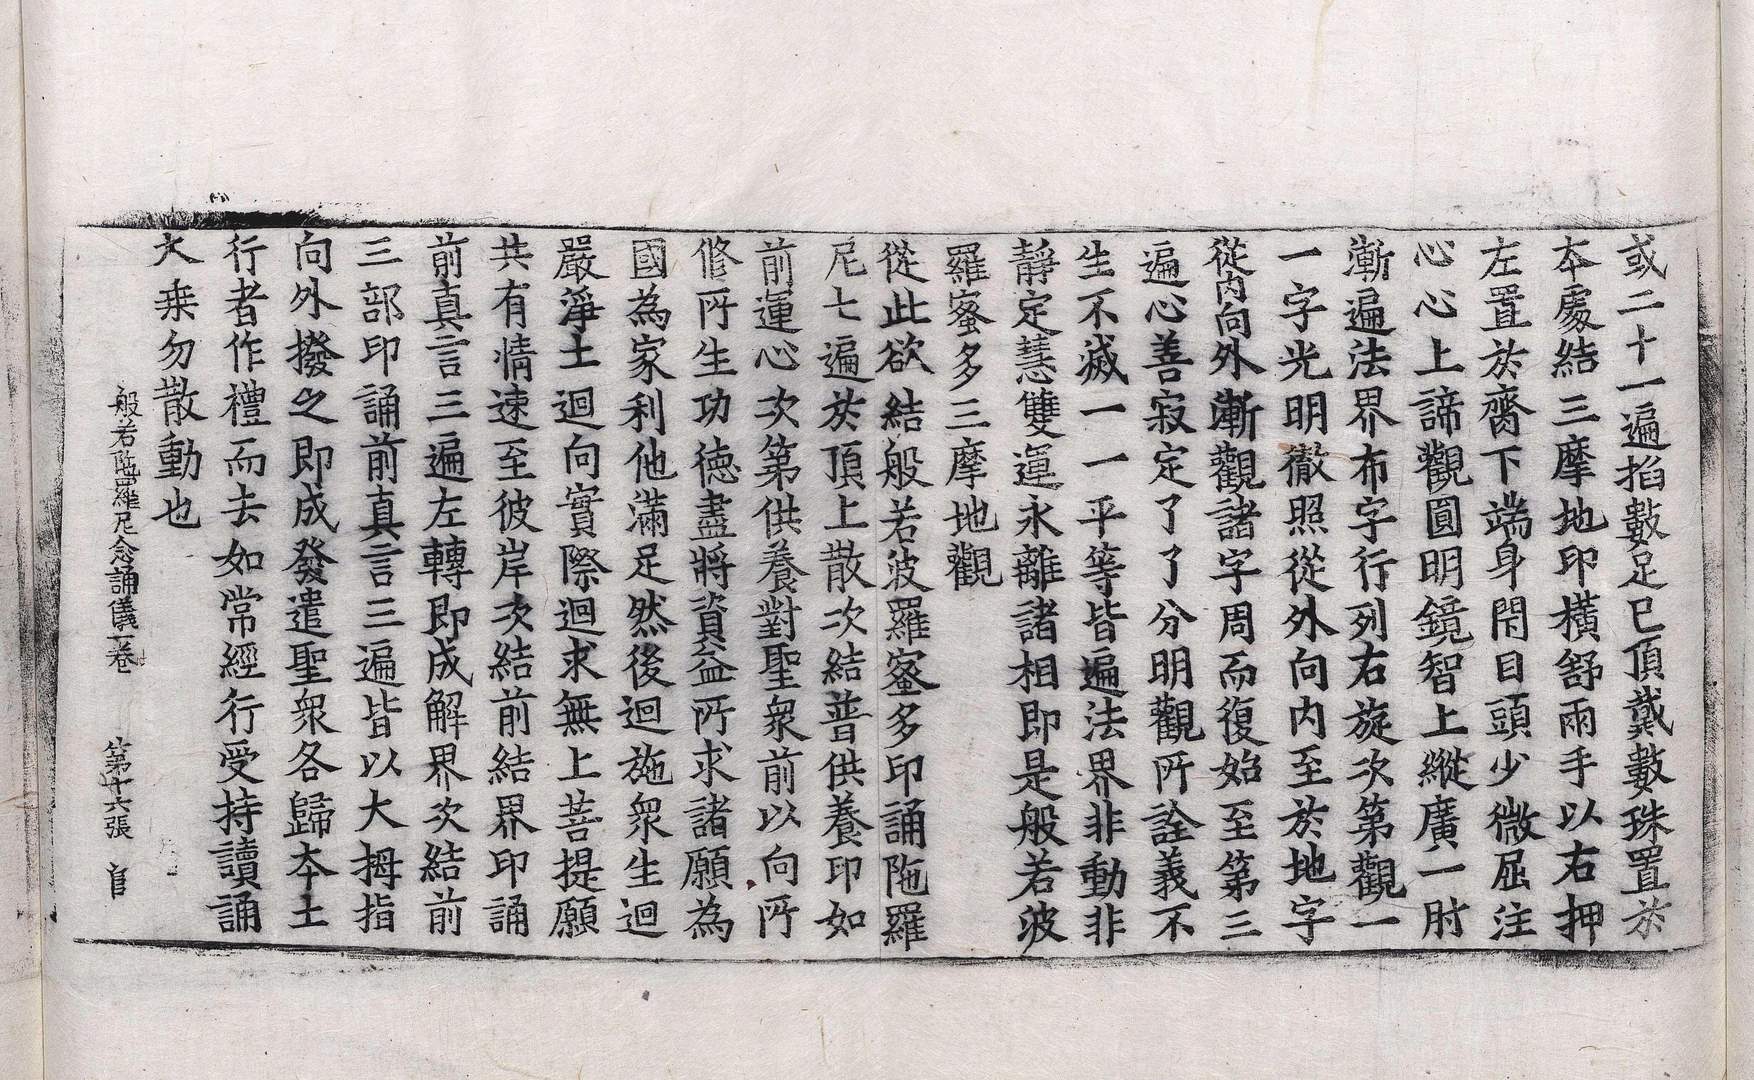 或二十一遍掐數足已頂戴數珠置於
本處結三摩地印橫舒兩手以右押
左置於齎下端身閇目頭少微屈注
心心上諦觀圓明鏡智上縱廣一肘
漸遍法界布字行列右旋次第觀一
一字光明徹照從外向内至於地字
從内向外漸觀諸字周而復始至第三
遍心善寂定了了分明觀所詮義不
生不滅一一平等皆遍法界非動非
靜定慧雙運永離諸相即是般若波
羅蜜多三摩地觀
從此欲結般若波羅蜜多印誦陁羅
尼七遍於頂上散次結普供養印如
前運心次第供養對聖衆前以向所
修所生功德盡將資益所求諸願為
國為家利他滿足然後迴施衆生迴
嚴淨土迴向實際迴求無上菩提願
共有情速至彼岸次結前結界印誦
前真言三遍左轉即成解界次結前
三部印誦前真言三遍皆以大拇指
向外撥之即成發遣聖衆各歸本土
行者作禮而去如常經行受持讀誦
大乗勿散動也
般若陁羅尼念誦儀一卷 第十六張